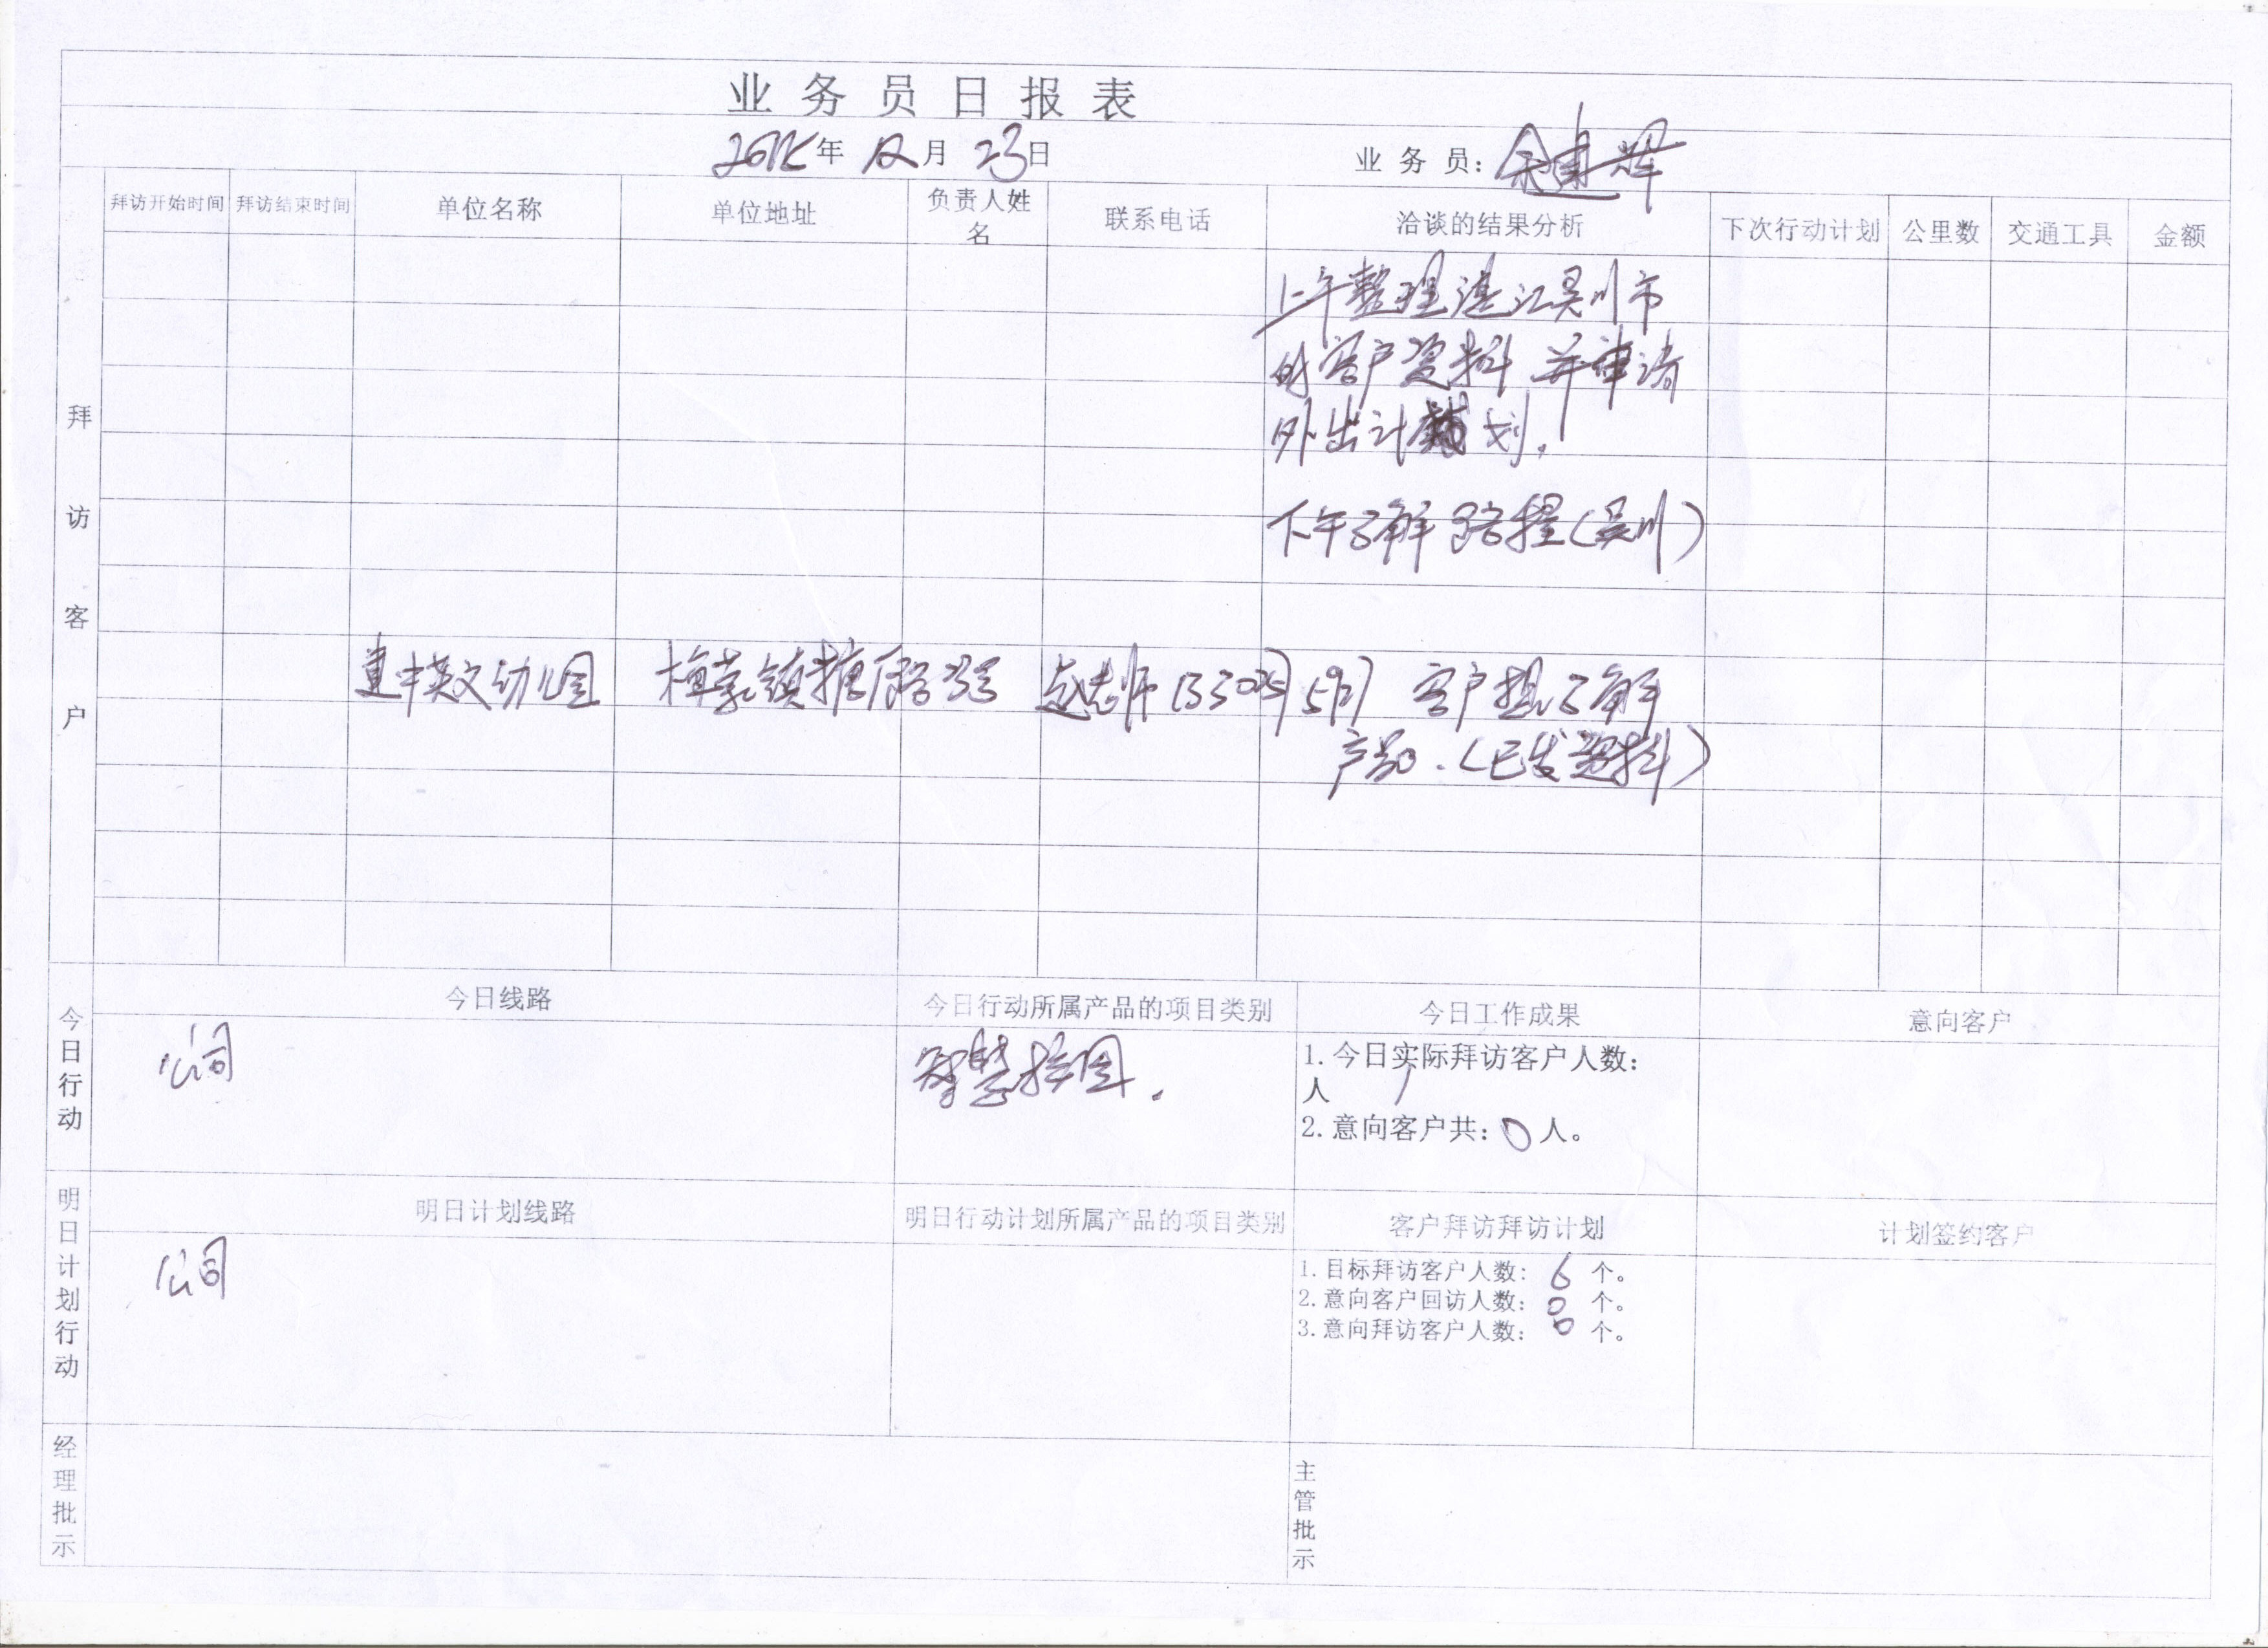 业务员日报表
年 12月 23日 业务员: 余建辉
拜访开始时间 拜访结束时间 单位名称 单位地址 负责人姓名 联系电话 洽谈的结果分析 下次行动计划 公里数 交通工具 金额
拜访客户
上午整理湛江吴川市
的客户资料 并申请
外出计划.
下午了解路程(吴川)
建中英文幼儿园 梅菉镇 赵老师 客户想了解
产品.(已发资料)
今日行动
今日线路 今日行动所属产品的项目类别 今日工作成果 意向客户
公司 智慧拼图.
1.今日实际拜访客户人数:
人 1
2.意向客户共: 0人。
明日计划行动
明日计划线路 明日行动计划所属产品的项目类别 客户拜访拜访计划 计划签约客户
公司
1.目标拜访客户人数: 6 个。
2.意向客户回访人数: 0 个。
3.意向拜访客户人数: 0 个。
经理批示 主管批示